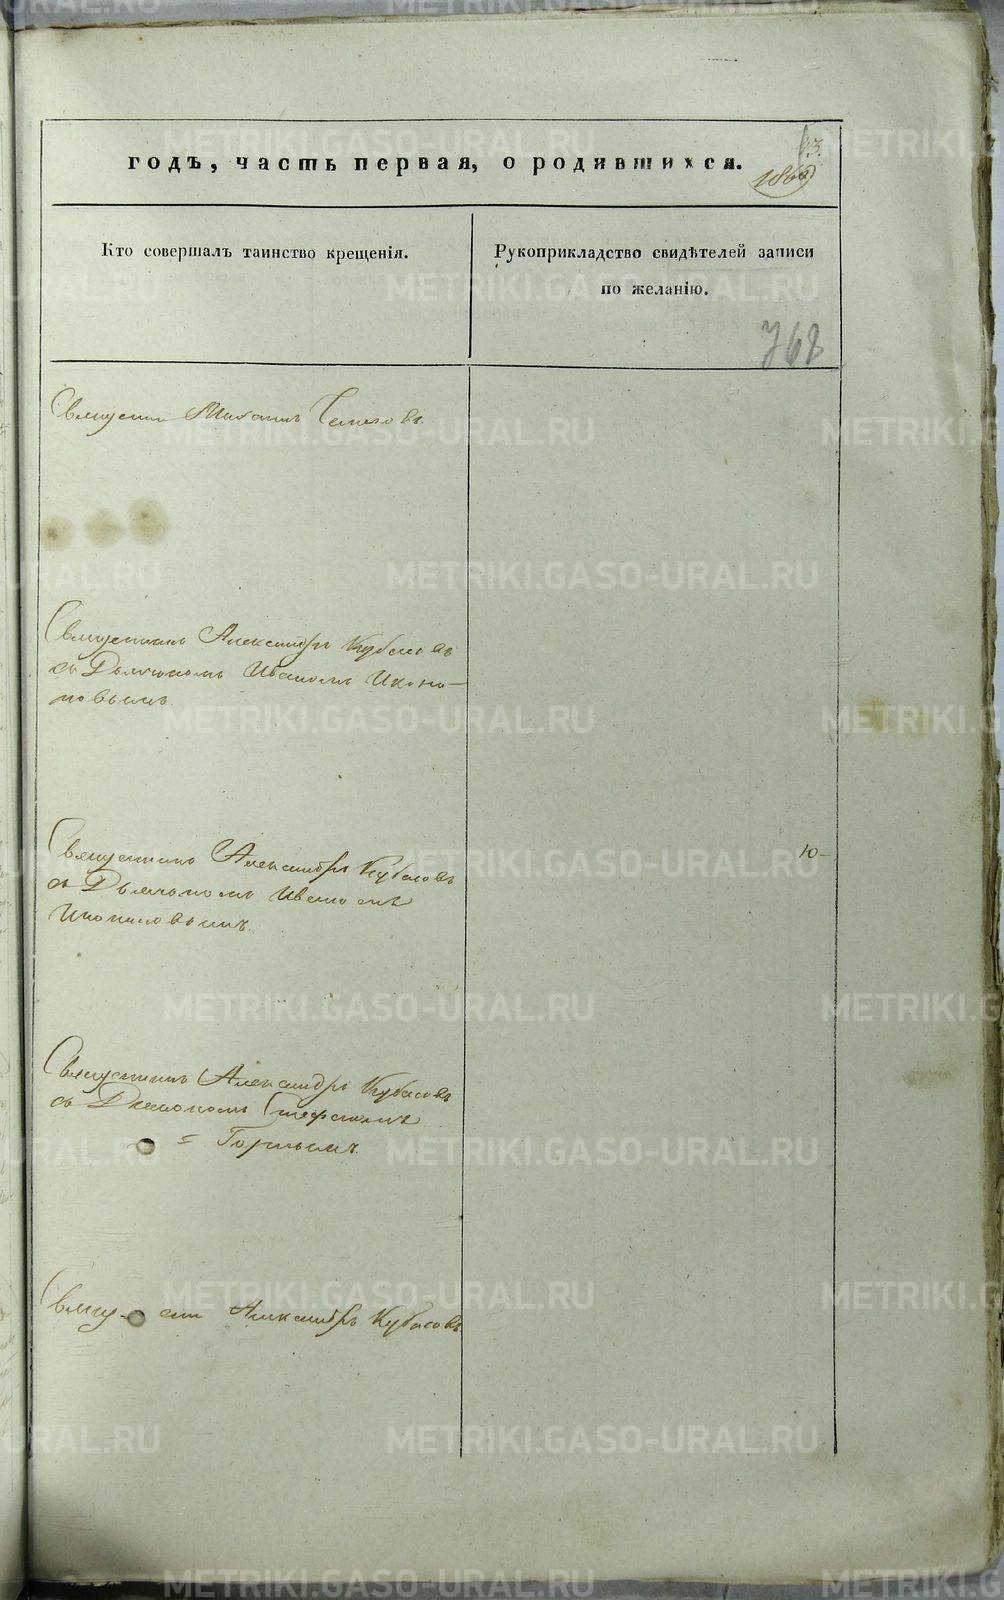 13.
годъ, часть первая, о родившихся.
Кто совершалъ таинство крещенія.
Рукоприкладство свидѣтелей записи
по желанію.
768
Священн Михаилъ
Священникъ Александръ Кубасовъ
съ Дьячкомъ Иваномъ Иконо-
новымъ.
Священникъ Александръ Кубасовъ
съ Дьячкомъ Иваномъ
10-
Священникъ Александръ Кубасовъ
съ Діакономъ Стефаномъ
= Горнымъ.
Александръ Кубасовъ
METRIKI.GASO-URAL.RU